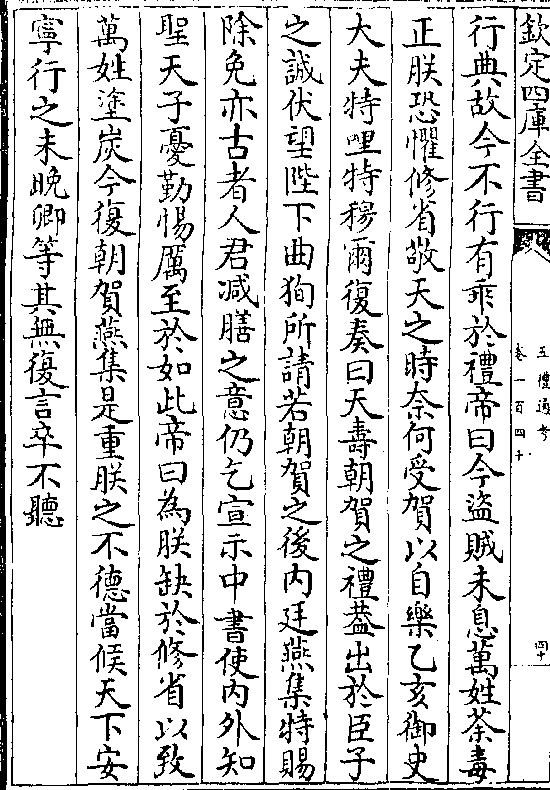 欽定四庫全書
五禮通考
卷一百四十
四十
行典故今不行有乖於禮帝曰今盜賊未息萬姓荼毒
正朕恐懼修省敬天之時奈何受賀以自樂乙亥御史
大夫特哩特穆爾復奏曰天壽朝賀之禮蓋出於臣子
之誠伏望陛下曲狥所請若朝賀之後內廷燕集特賜
除免亦古者人君減膳之意仍乞宣示中書使內外知
聖天子憂勤惕厲至於如此帝曰為朕缺於修省以致
萬姓塗炭今復朝賀燕集是重朕之不德當候天下安
寧行之未晚卿等其無復言卒不聽